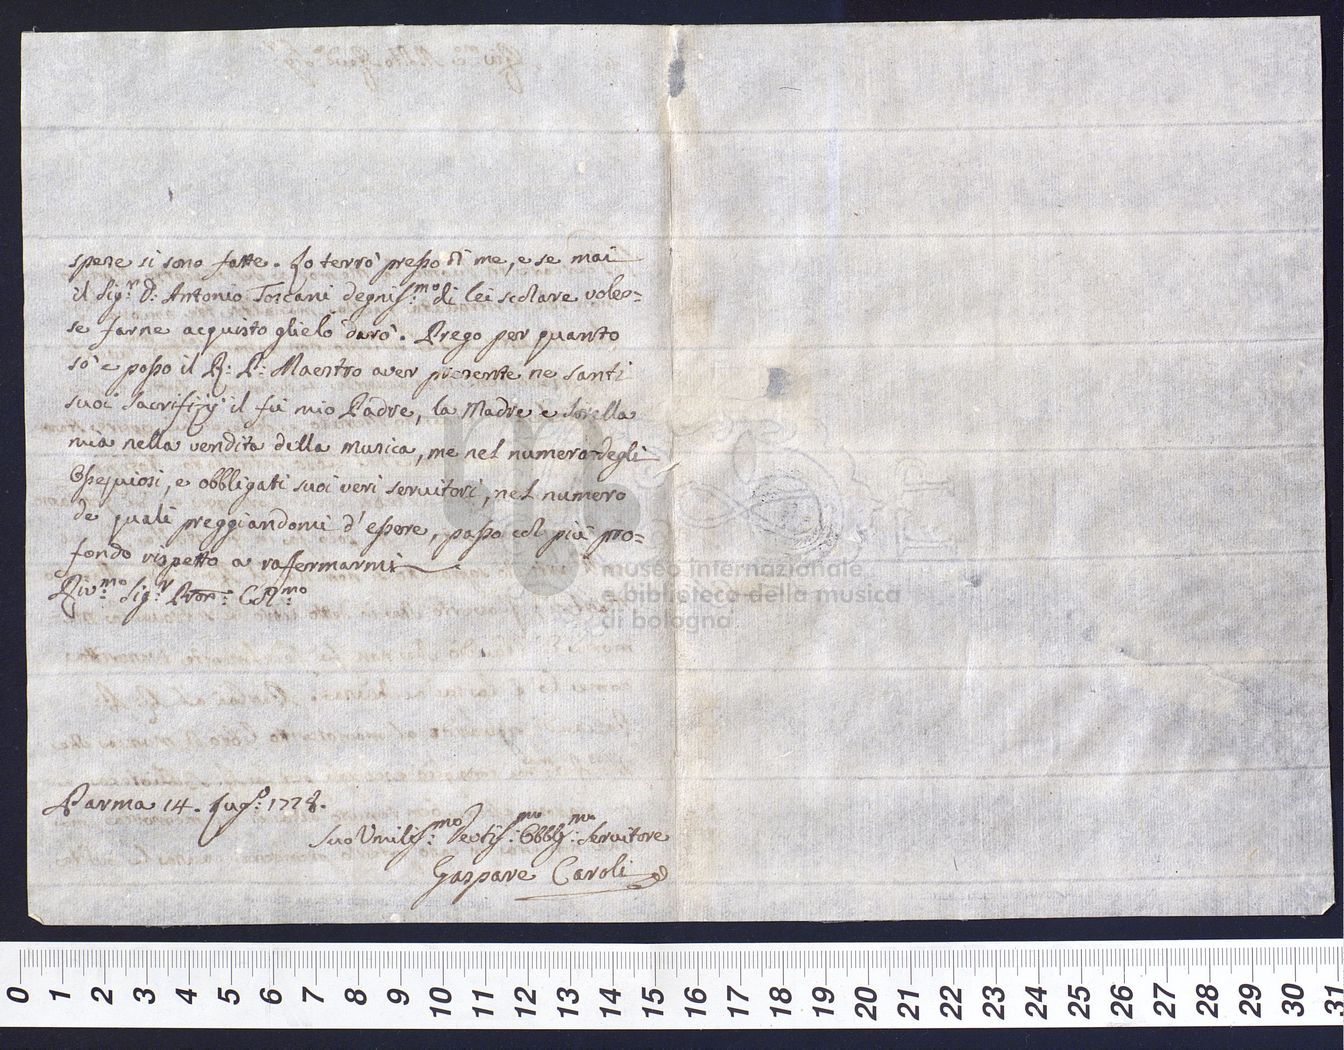 spese si sono fatte. Io terrò presso di me, e se mai
il Sig.r D: Antonio Toscani degniss.mo di lei scolare voles=
se farne acquisto glielò darò. Prego per quanto
sò e posso il R: P: Maestro aver presente ne santi
suoi Sacrifizij il fù mio Padre, la Madre e Sorella
mia nella vendita della musica, me nel numero degli
Ossequiosi, e obbligati suoi veri servitori, nel numero
de quali preggiandomi d'essere, passo col più pro=
fondo rispetto a raffermarmi
Riv.mo Sig.r Pron: C.R.mo
museo internazionale
e biblioteca della musica
di bologna
Parma 14. Lug.o 1778.
Suo Umiliss.mo Devotiss.mo Obblig.mo Servitore
Gaspare Caroli
0 1 2 3 4 5 6 7 8 9 10 11 12 13 14 15 16 17 18 19 20 21 22 23 24 25 26 27 28 29 30 31